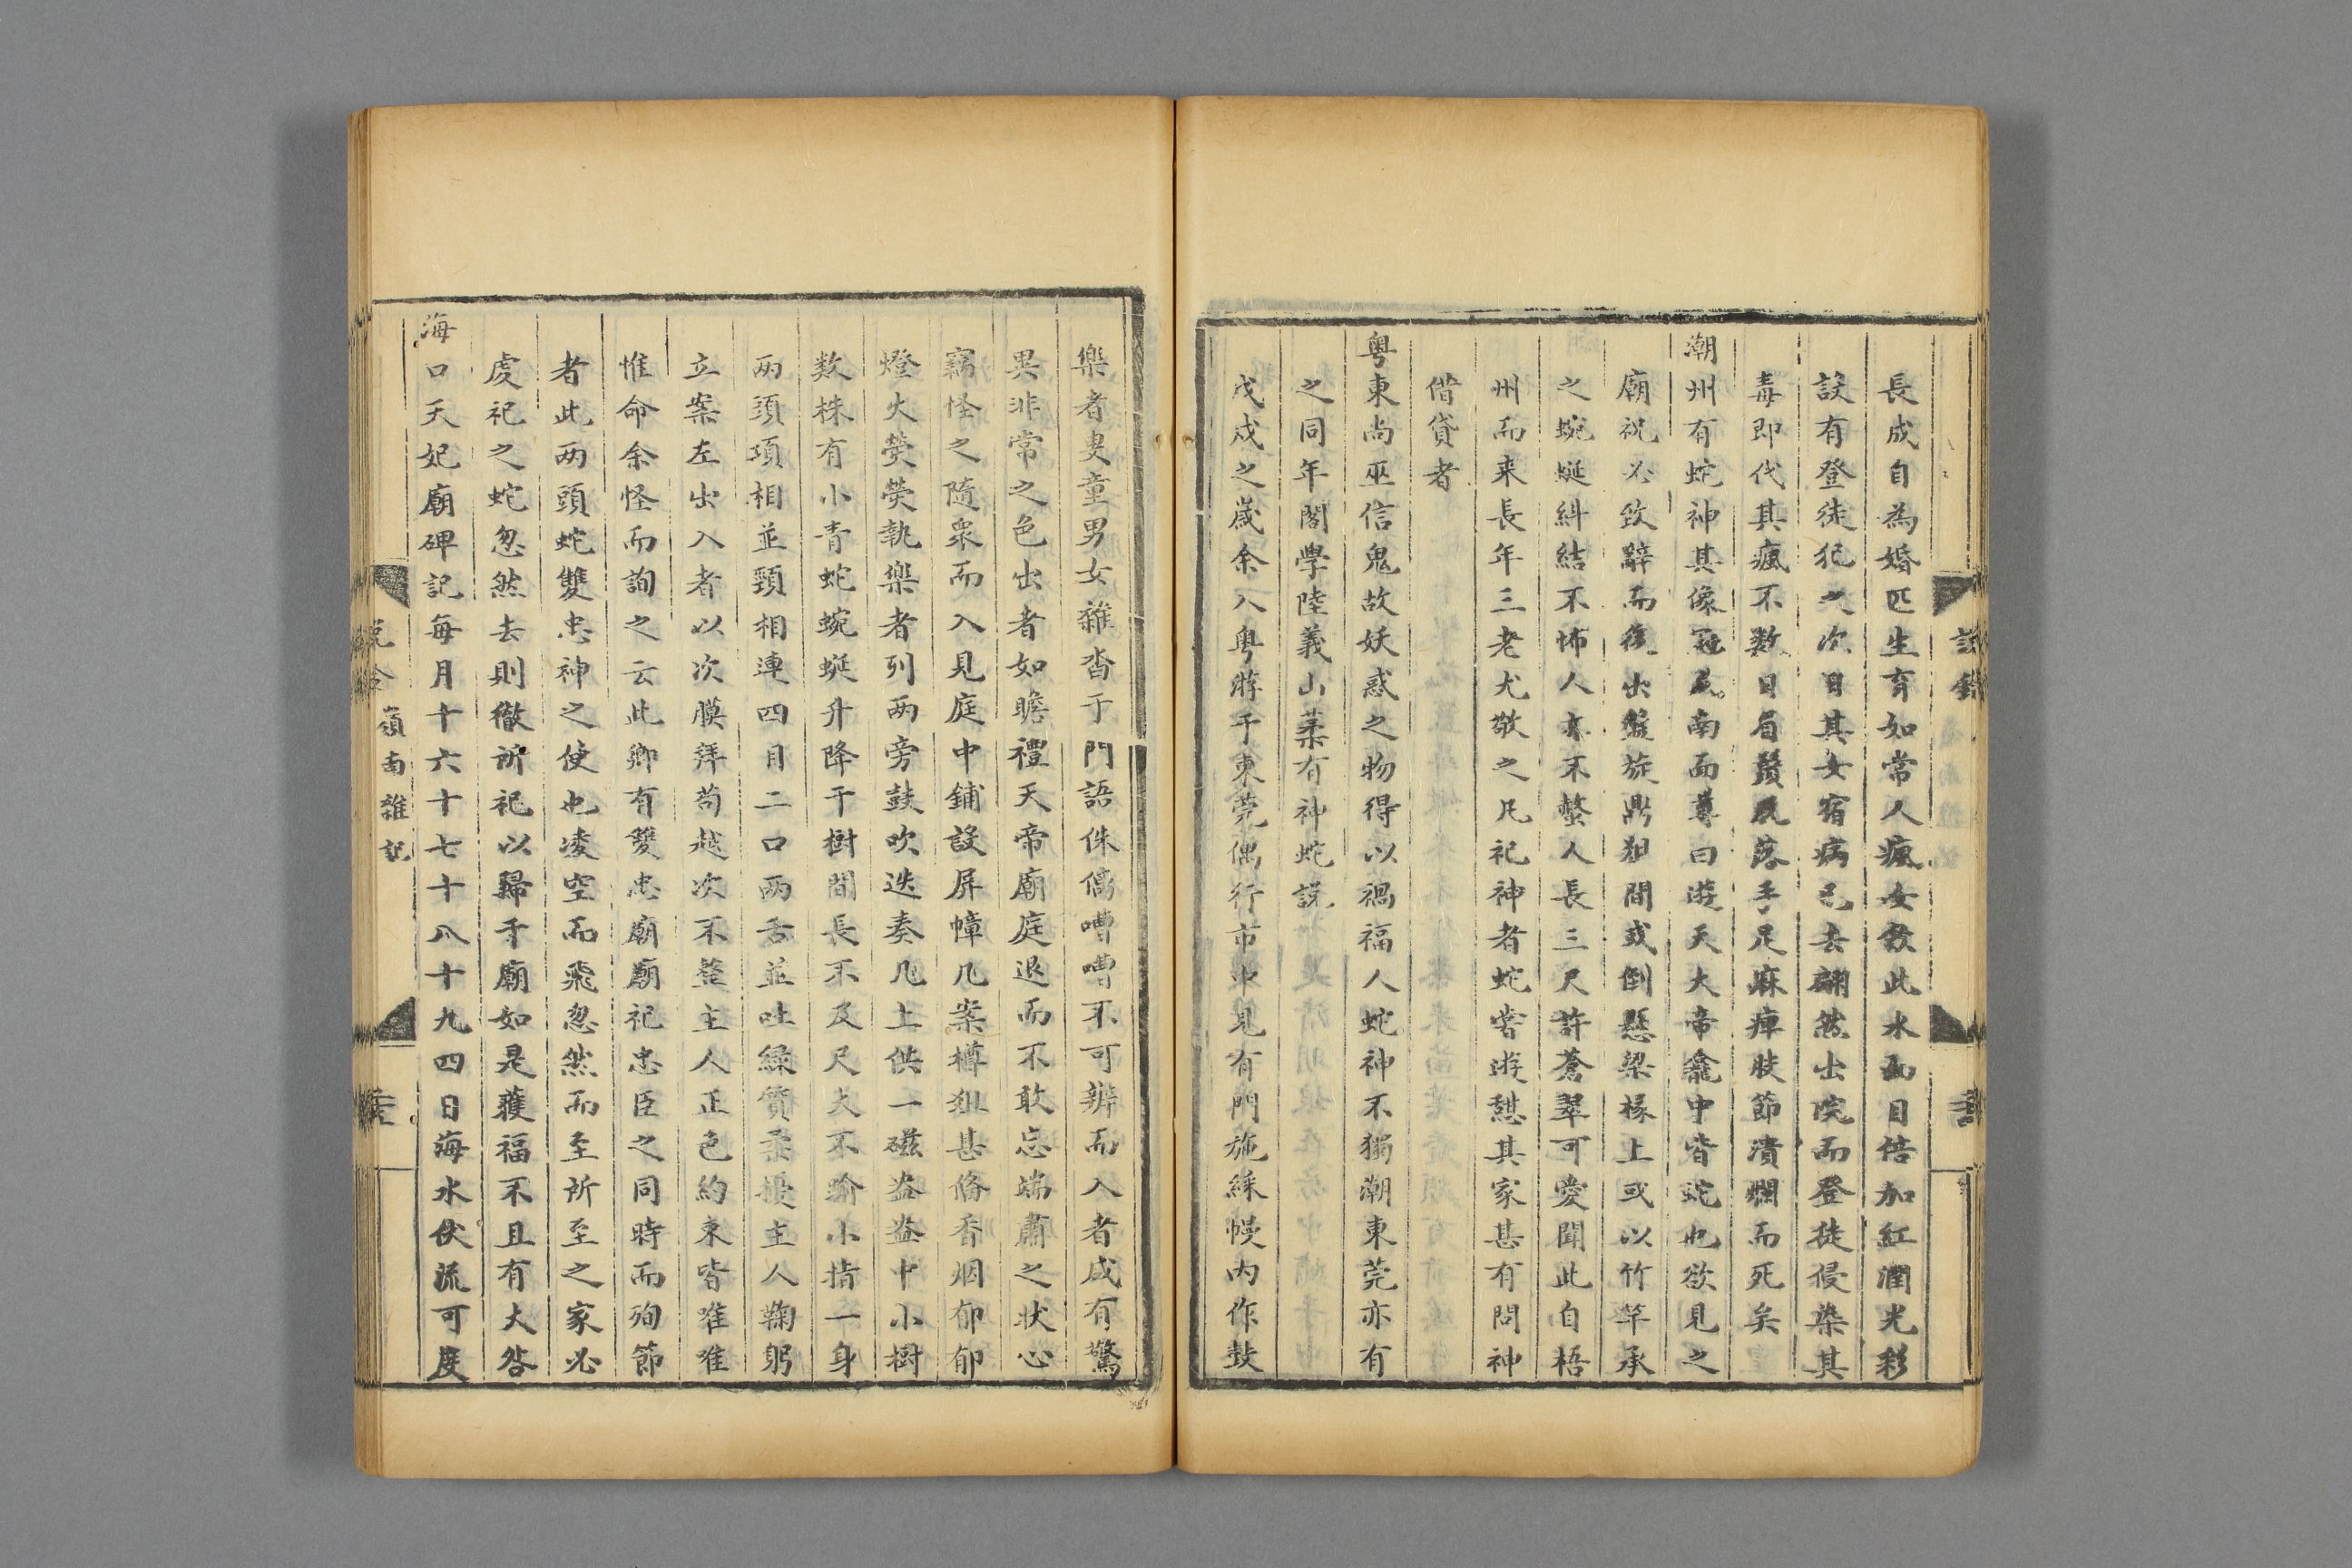 長成自為婚匹生育如常人瘋女飲此水面目倍加紅潤光彩
設有登徒犯之次日其女宿病已去翩然出院而登徒侵染其
毒即代其瘋不數日眉鬚脱落手足麻痺肢節潰爛而死矣
潮州有蛇神其像冠冕南面尊曰遊天大帝龕中皆蛇也欲見之
廟祝必致辭而後出盤旋鼎俎間或倒懸梁椽上或以竹竿承
之蜿蜒糾結不怖人亦不螫人長三尺許蒼翠可愛聞此自梧
州而来長年三老尤敬之凡祀神者蛇嘗遊憇其家甚有問神
借貸者
粤東尚巫信鬼故妖惑之物得以禍福人蛇神不獨潮東莞亦有
之同年閣學陸義山葇有神蛇說
戊戍之歳余入粤游于東莞偶行市中見有門施綵幔内作鼓
樂者叟童男女雜沓于門語侏㒧嘈嘈不可辨而入者咸有驚
異非常之色出者如瞻禮天帝廟庭退而不敢忘端肅之状心
竊怪之隨衆而入見庭中鋪設屏幛几案樽俎甚脩香烟郁郁
燈火熒熒執樂者列两旁鼓吹迭奏几上供一磁盎盎中小樹
数株有小青蛇蜿蜒升降于樹間長不及尺大不踰小指一身
两頭項相並頸相連四目二口两舌並吐緑質柔擾主人鞠躬
立案左出入者以次膜拜苟越次不整主人正色約束皆唯唯
惟命余怪而詢之云此鄉有雙忠廟廟祀忠臣之同時而殉節
者此两頭蛇雙忠神之使也凌空而飛忽然而至所至之家必
虔祀之蛇忽然去則徹所祀以歸于廟如是獲福不且有大咎
海口天妃廟碑記每月十六十七十八十九四日海水伏流可度
嶺南雜記